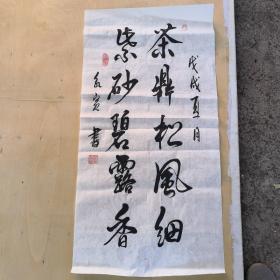 戊戌夏月
茶鼎松風細
紫砂碧露香
書